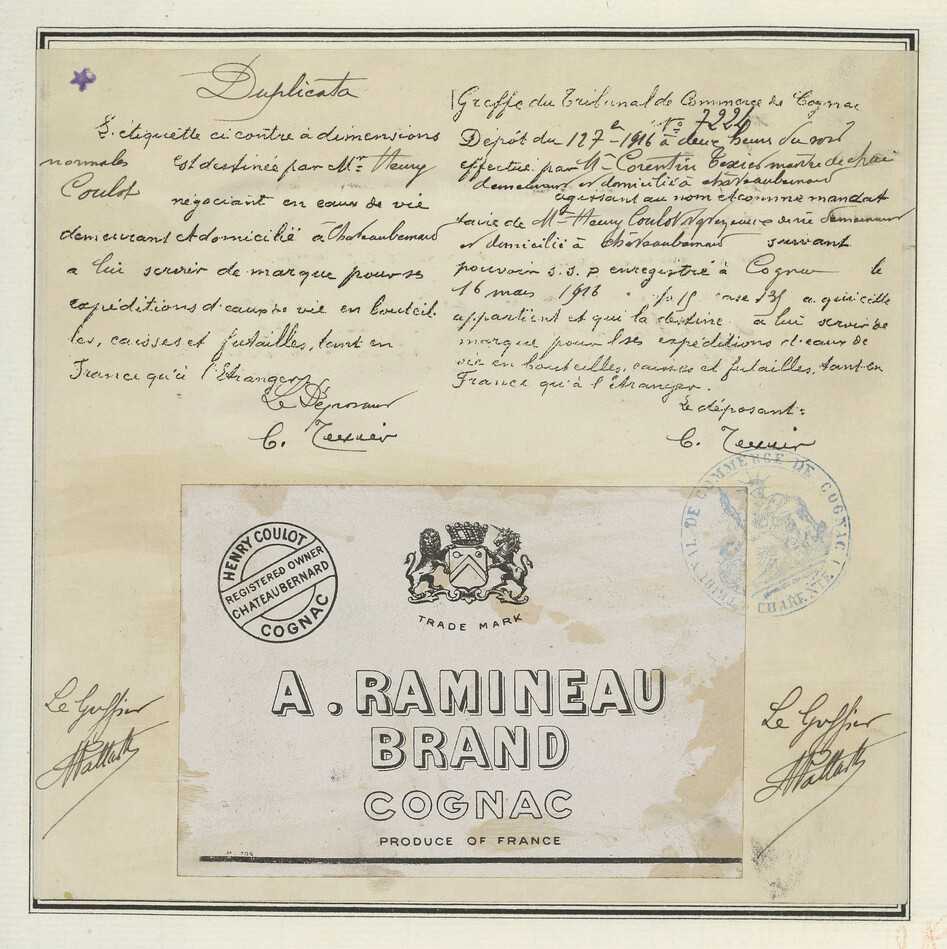 Duplicata
L'étiquette ci contre à dimensions
normales est destinée par Mr. Henry
Coulot négociant en eaux de vie
demeurant et domicilié à Chateaubernard
a lui servir de marque pour ses
expéditions d'eaux de vie en bouteil
les, caisses et futailles, tant en
France qu'à l'Etranger
Le Déposant
C. Texier
Greffe du Tribunal de Commerce de Cognac
No 7224
Dépôt du 1916 à deux heures du soir
effectué par Mr Corentin Texier maitre de chai
demeurant et domicilié à châteaubernard
agissant au nom et comme mandat
taire de Mr Henry Coulot demeurant
et domicilié à châteaubernard suivant
pouvoir s.s.p enregistré à Cognac le
16 mars 1916 fo 15 case 135 a qui cette
appartient et qui la destine a lui servir de
marque pour ses expéditions d'eaux de
vie en bouteilles, caisses et futailles, tant en
France qu'à l'étranger.
Le déposant:
C. Texier
TRIBUNAL DE COMMERCE DE COGNAC
CHARENTE
HENRY COULOT
REGISTERED OWNER
CHATEAUBERNARD
COGNAC
TRADE MARK
A. RAMINEAU
BRAND
COGNAC
PRODUCE OF FRANCE
Le Greffier
Le Greffier